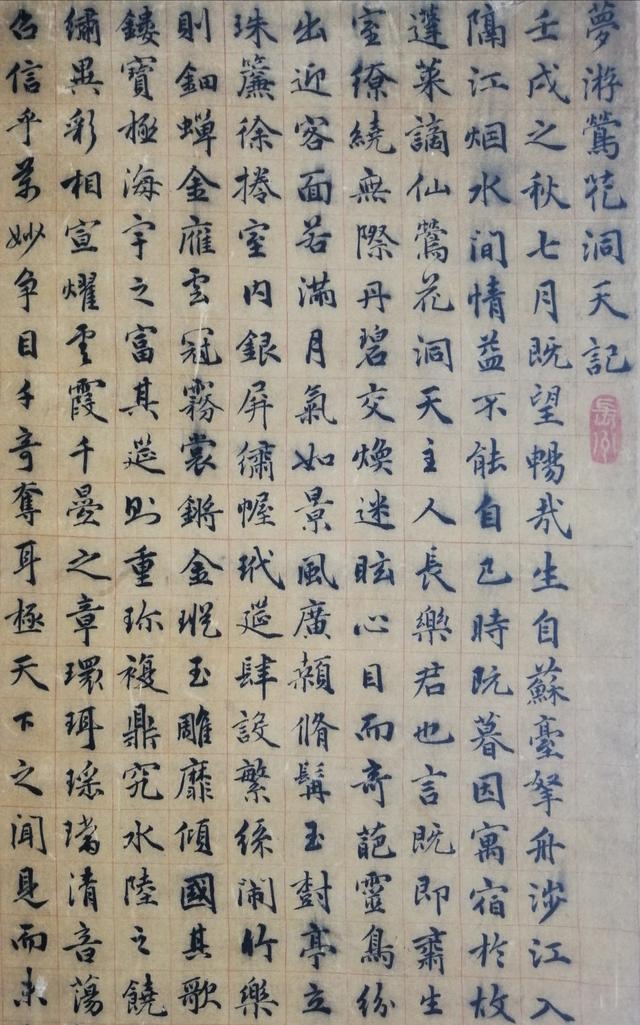 夢游鶯花洞天記
壬戌之秋七月既望暢哉生自蘇臺拏舟涉江入
隔江烟水间情益不能自已時既暮因寓宿於故
蓬萊謫仙鶯花洞天主人長樂君也言既即齋生
室繚繞無際丹碧交煥迷眩心目而奇葩靈鳥纷
出迎客面若滿月氣如景風廣顙脩髯玉樹亭立
珠簾徐捲室内銀屏繡幄玳筵肆設繁絲闹竹樂
則鈿蟬金雁雲冠霧裳鏘金瑽玉雕靡傾國其歌
鏤寶極海宇之富其筵则重珎複鼎究水陸之饒
繡異彩相宣燿雲霞千叠之章環珥瑶璚清音蕩
信乎萬妙争目千奇奪耳極天下之闻見而未